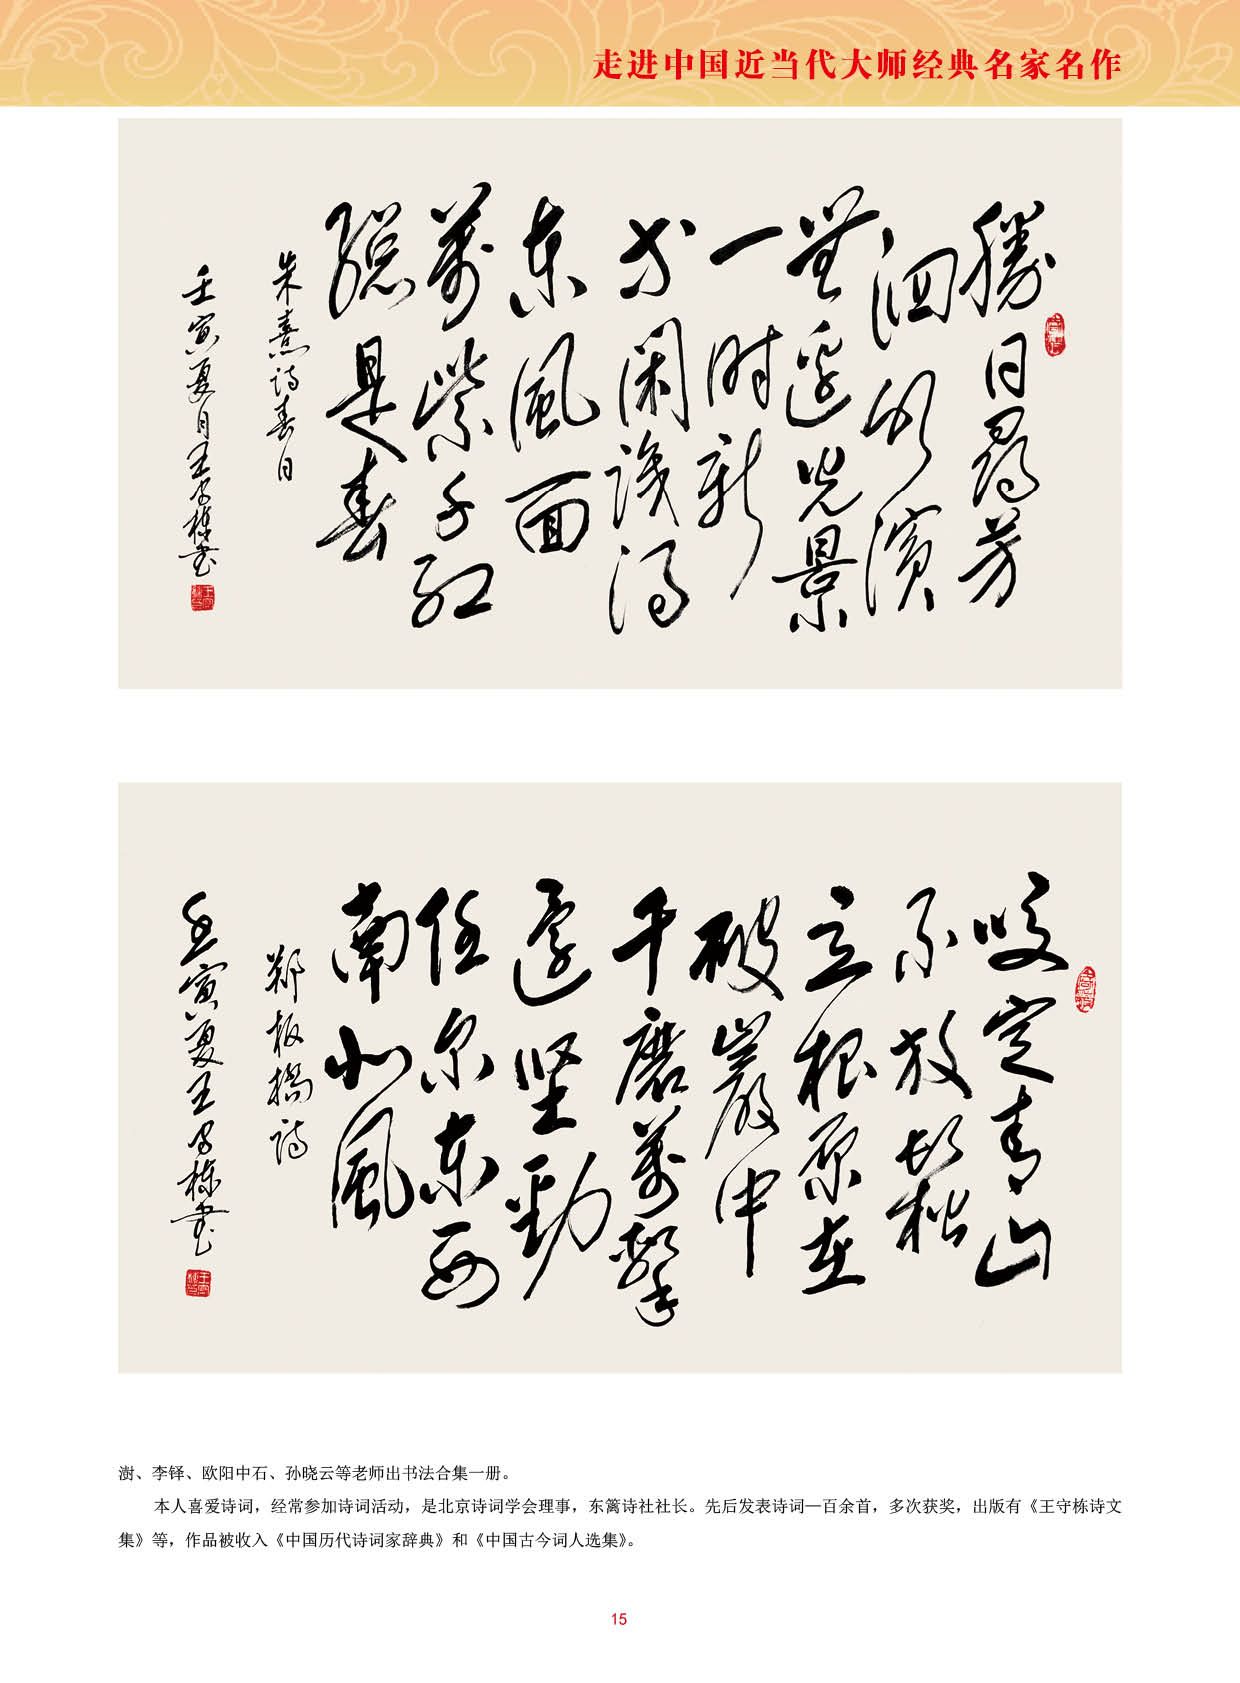 走进中国近当代大师经典名家名作
勝日尋芳
泗水濱
無邊光景
一时新
等闲識得
东風面
萬紫千红
總是春
朱熹诗春日
壬寅夏月王守栋书
咬定青山
不放鬆
立根原在
破巖中
千磨萬擊
還坚勁
任尔东西
南北風
郑板橋诗
壬寅夏王守栋书
澍、李铎、欧阳中石、孙晓云等老师出书法合集一册。
本人喜爱诗词，经常参加诗词活动，是北京诗词学会理事，东篱诗社社长。先后发表诗词—百余首，多次获奖，出版有《王守栋诗文
集》等，作品被收入《中国历代诗词家辞典》和《中国古今词人选集》。
15